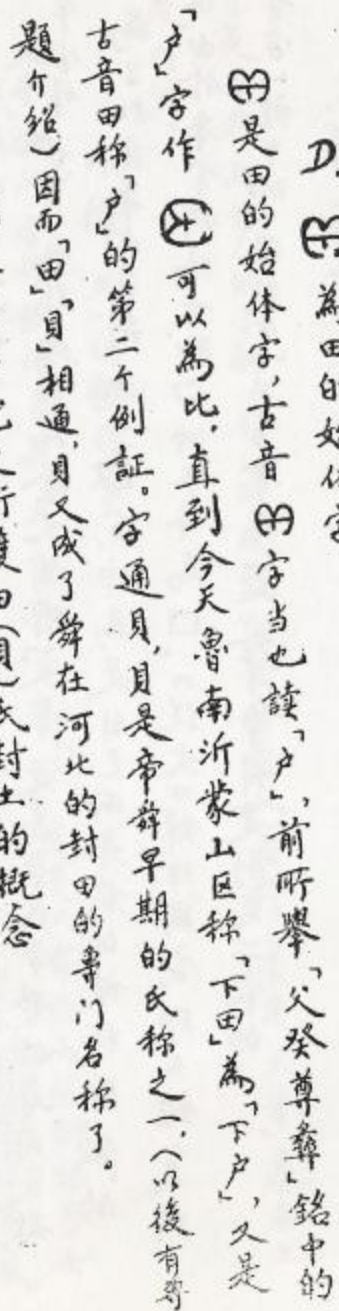 D. 為田的始体字
是田的始体字，古音字当也讀「户」，前所舉「父癸尊彝」銘中的
「户」字作 可以為比，直到今天魯南沂蒙山区称「下田」為「下户」，又是
古音田称「户」的第二个例証。字通貝，貝是帝舜早期的氏称之一，（以後有専
題介绍）因而「田」「貝」相通，貝又成了舜在河北的封田的專门名称了。
田（貝）氏封土的概念